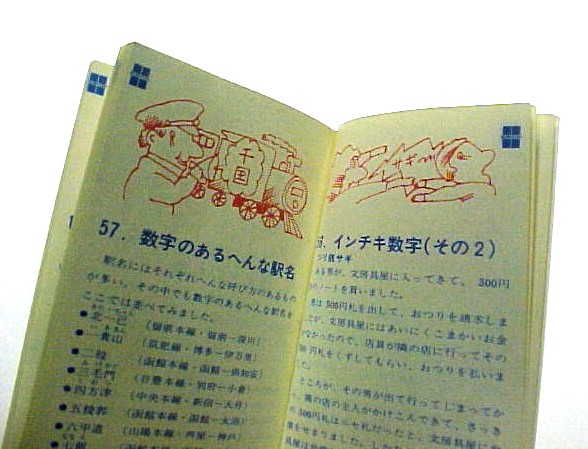 千
九
里
57. 数字のあるへんな駅名
駅名にはそれぞれへんな呼び方のあるもの
が多い。その中でも数字のあるへんな駅名を
ここでは並べてみました。
●北一已 (留萌本線・留萌ー深川)
一貴山 (筑肥線・博多ー伊万里)
●二股 (函館本線・函館ー倶知安)
●三毛門 (日豊本線・別府ー小倉)
●四方津 (中央本線・新宿ー大月)
●五稜郭 (函館本線・函館ー大沼)
●六甲道 (山陽本線・芦屋ー神戸)
サギ
インチキ数字(その2)
サギ
男が、文房具屋に入ってきて、300円
のノートを買いました。
は500円札を出して、おつりを請求しま
が、文房具屋にはあいにくこまかいお金
なかったので、店員が隣の店に行ってその
円札をくずしてもらい、おつりを払いま
ところが、その男が出て行ってしまってか
隣の店の主人がかけこんできて、さっき
の500円札はニセ札だったと、文房具屋に